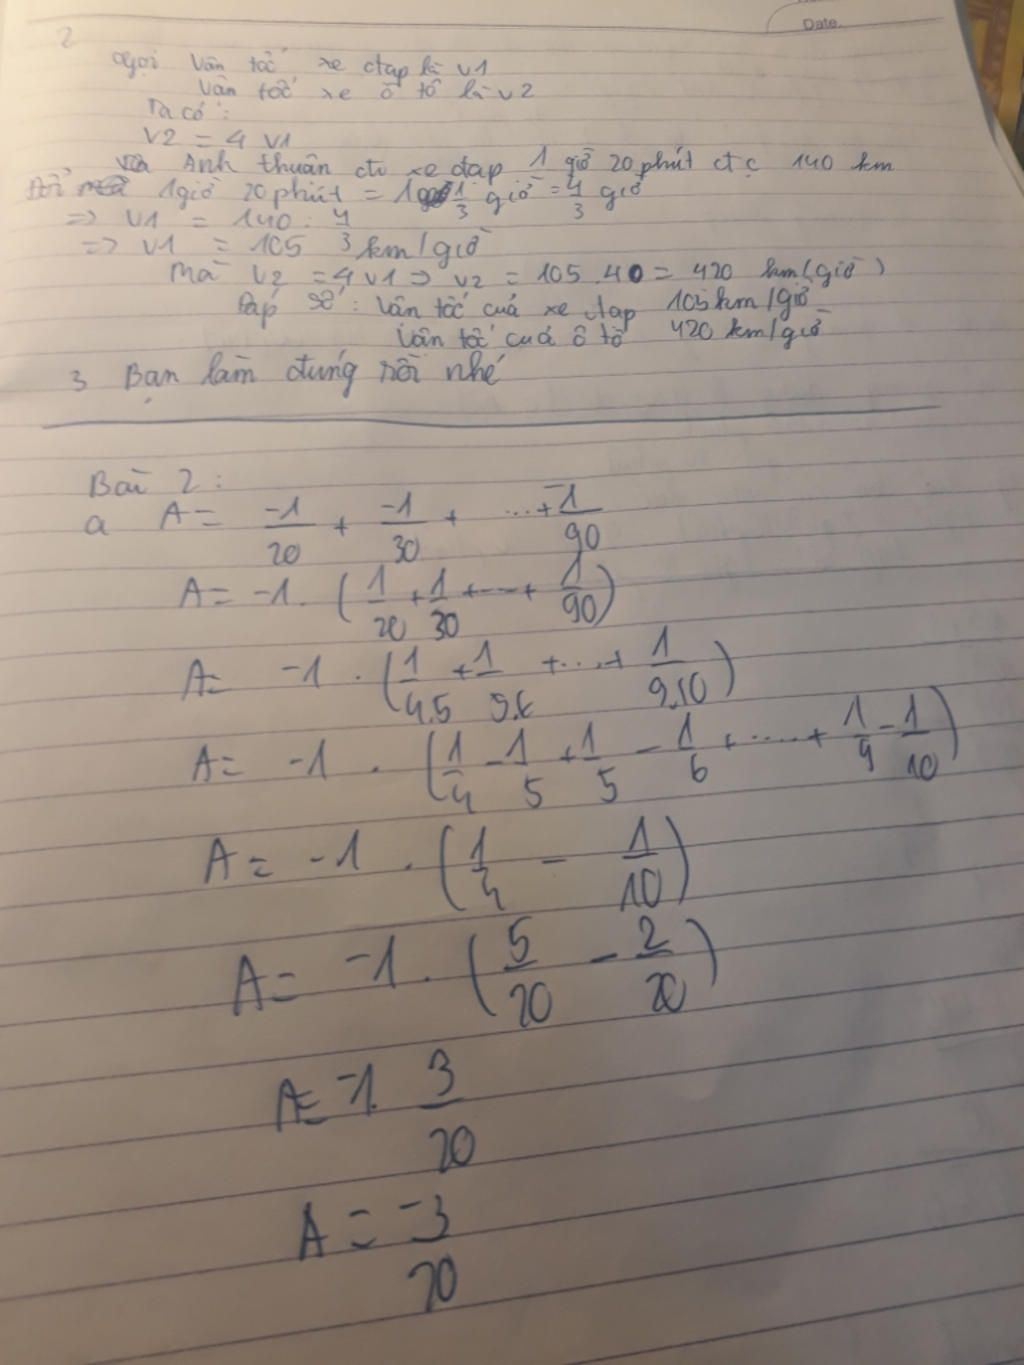 Date.
2
Gọi Vân tốc xe đạp là v1
Vân tốc xe ô tô là v2
Ta có:
V2 = 4 V1
và Anh thuân đi xe đạp 1 giờ 20 phút đc 140 km
Đổi 1giờ 20 phút = 1 1/3 giờ = 4/3 giờ
=> V1 = 140 : 4/3
=> V1 = 105 km/giờ
Mà V2 = 4 V1 => V2 = 105 . 40 = 420 km/giờ)
Đáp số: Vân tốc cuả xe đạp 105km/giờ
Vân tốc cuả ô tô 420 km/giờ
3 Bạn làm đúng rồi nhé
Bài 2:
a A = -1/20 + -1/30 + ...+ -1/90
A = -1. (1/20 + 1/30 + ... + 1/90)
A = -1 . (1/4.5 + 1/5.6 + ... + 1/9.10)
A = -1 . (1/4 - 1/5 + 1/5 - 1/6 + ..... + 1/9 - 1/10)
A = -1 . (1/4 - 1/10)
A = -1 . (5/20 - 2/20)
A = -1. 3/20
A = -3/20